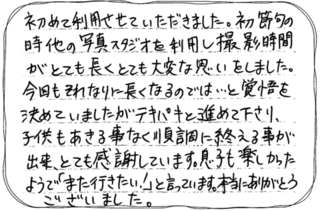 初めて利用させていただきました。初節句の
時他の写真スタジオを利用し撮影時間
がとても長くとても大変な思いをしました。
今回もそれなりに長くなるのでは…と覚悟を
決めていましたがテキパキと進めて下さり、
子供もあきる事なく順調に終える事が
出来、とても感謝しています。息子も楽しかった
ようで「また行きたい!」と言っています。本当にありがとう
ございました。